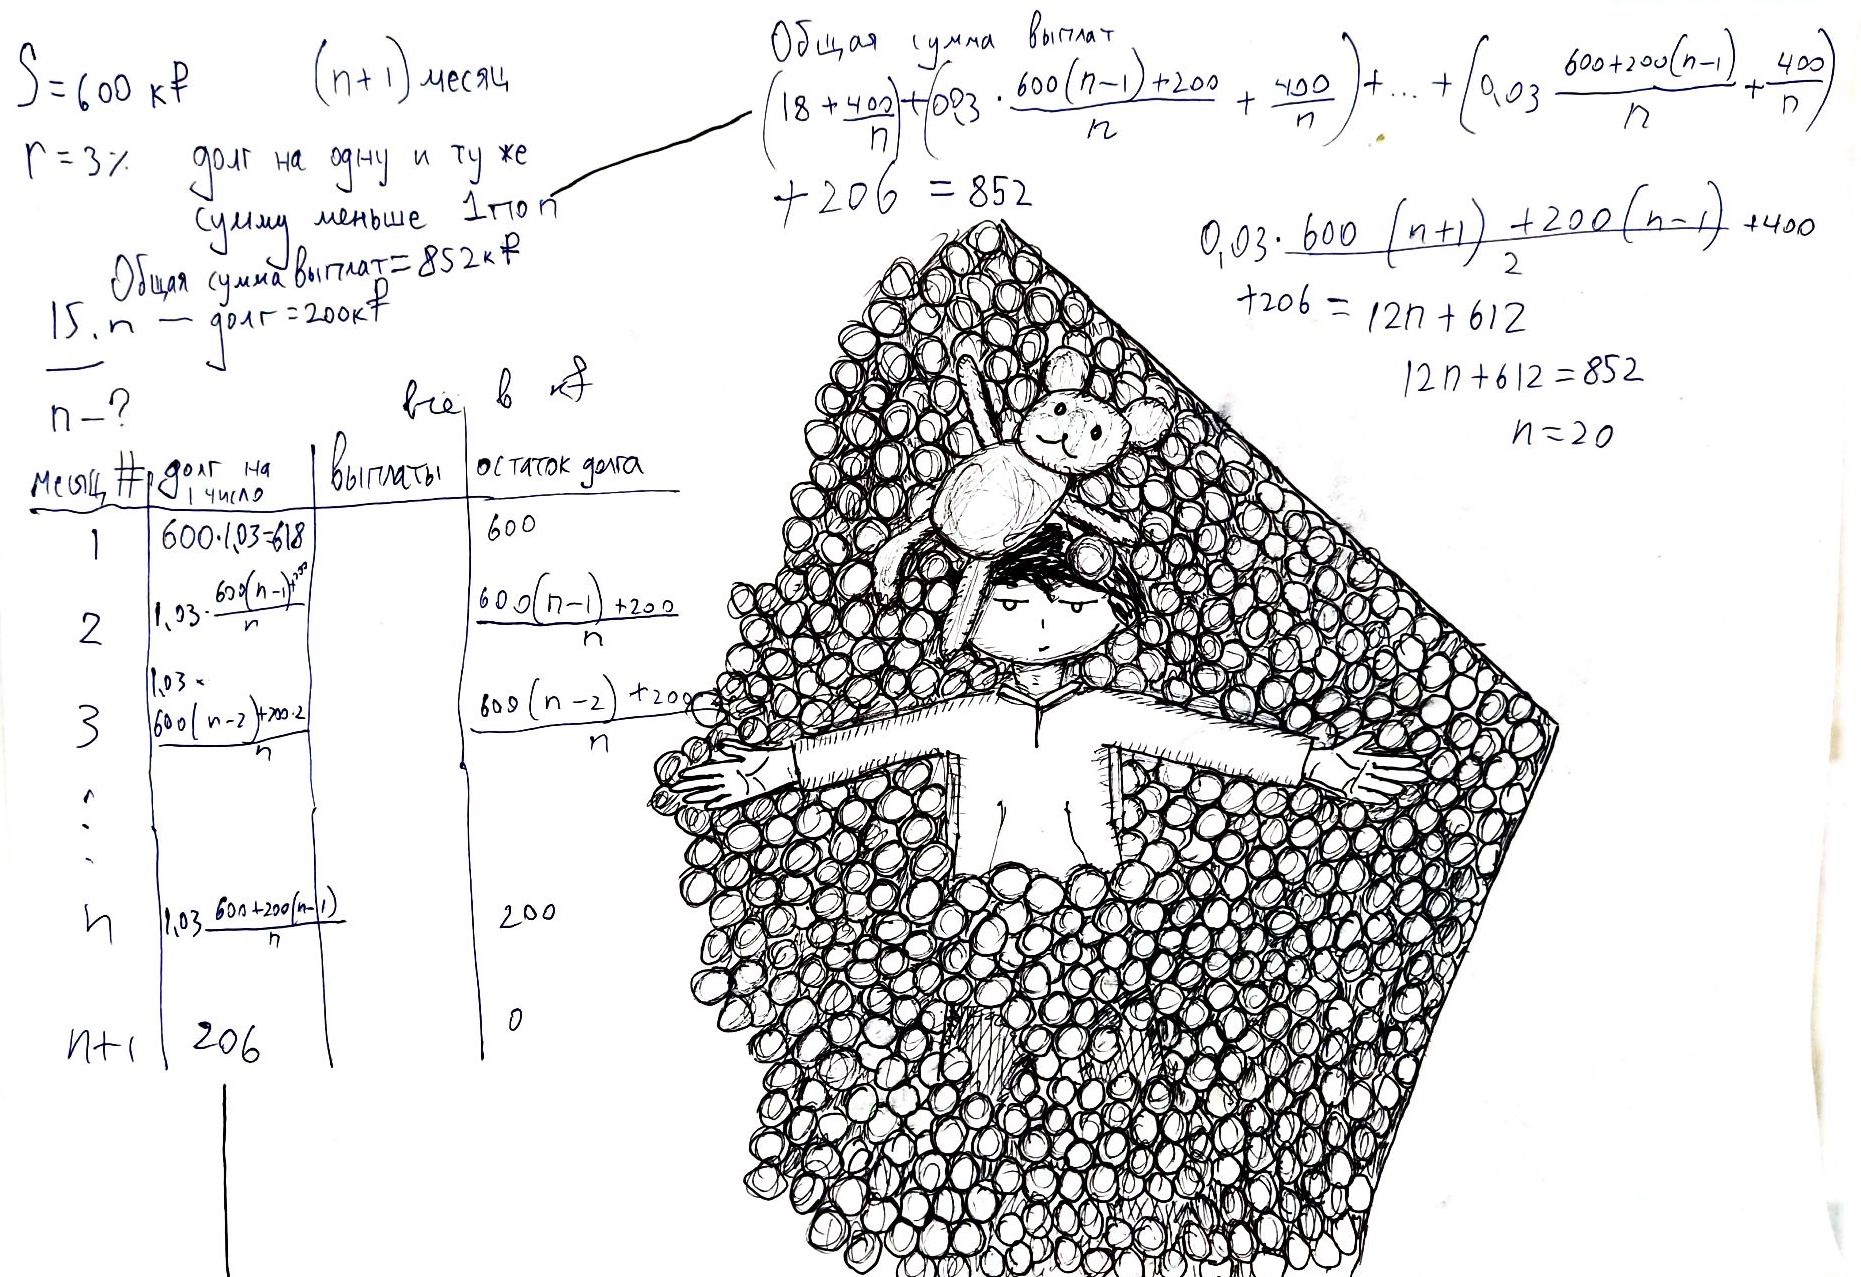 S = 600 к₽ (n+1) месяц
r = 3% долг на одну и ту же
сумму меньше 1 по n
Общая сумма выплат = 852 к₽
15. n — долг = 200 к₽
n - ?
все в к₽
месяц # долг на 1 число выплаты остаток долга
1 600·1,03=618 600
2 1,03 · (600(n-1)+200)/n (600(n-1)+200)/n
3 1,03 × (600(n-2)+200·2)/n (600(n-2)+200)/n
n 1,03 (600+200(n-1))/n 200
n+1 206 0
Общая сумма выплат
(18 + 400/n) + (0,03 · (600(n-1)+200)/n + 400/n) + ... + (0,03 (600+200(n-1))/n + 400/n)
+ 206 = 852
0,03 · (600 (n+1) + 200(n-1))/2 + 400
+206 = 12n + 612
12n + 612 = 852
n = 20